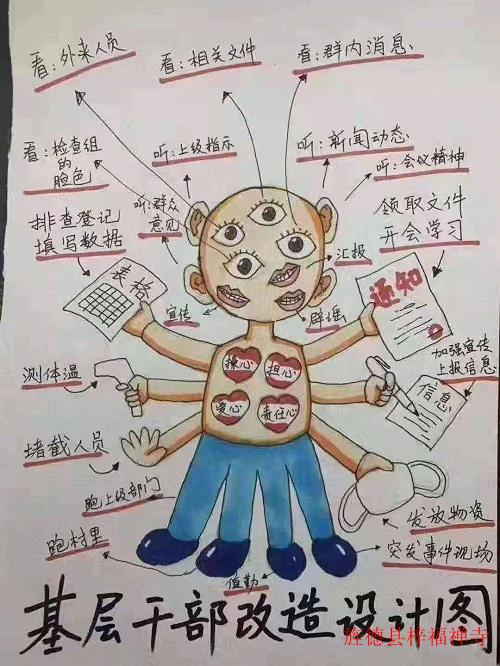 看:外来人员
看:相关文件
看:群内消息
看:检查组
的
脸色
听:上级指示
听:新闻动态
听:会议精神
听:群众
意见
排查登记
填写数据
领取文件
开会学习
汇报
表格
通知
宣传
辟谣
测体温
操心
担心
爱心
责任心
加强宣传
上报信息
信息
堵截人员
跑上级部门
发放物资
跑村里
值勤
突发事件现场
基层干部改造设计图
旌德县梓福禅寺